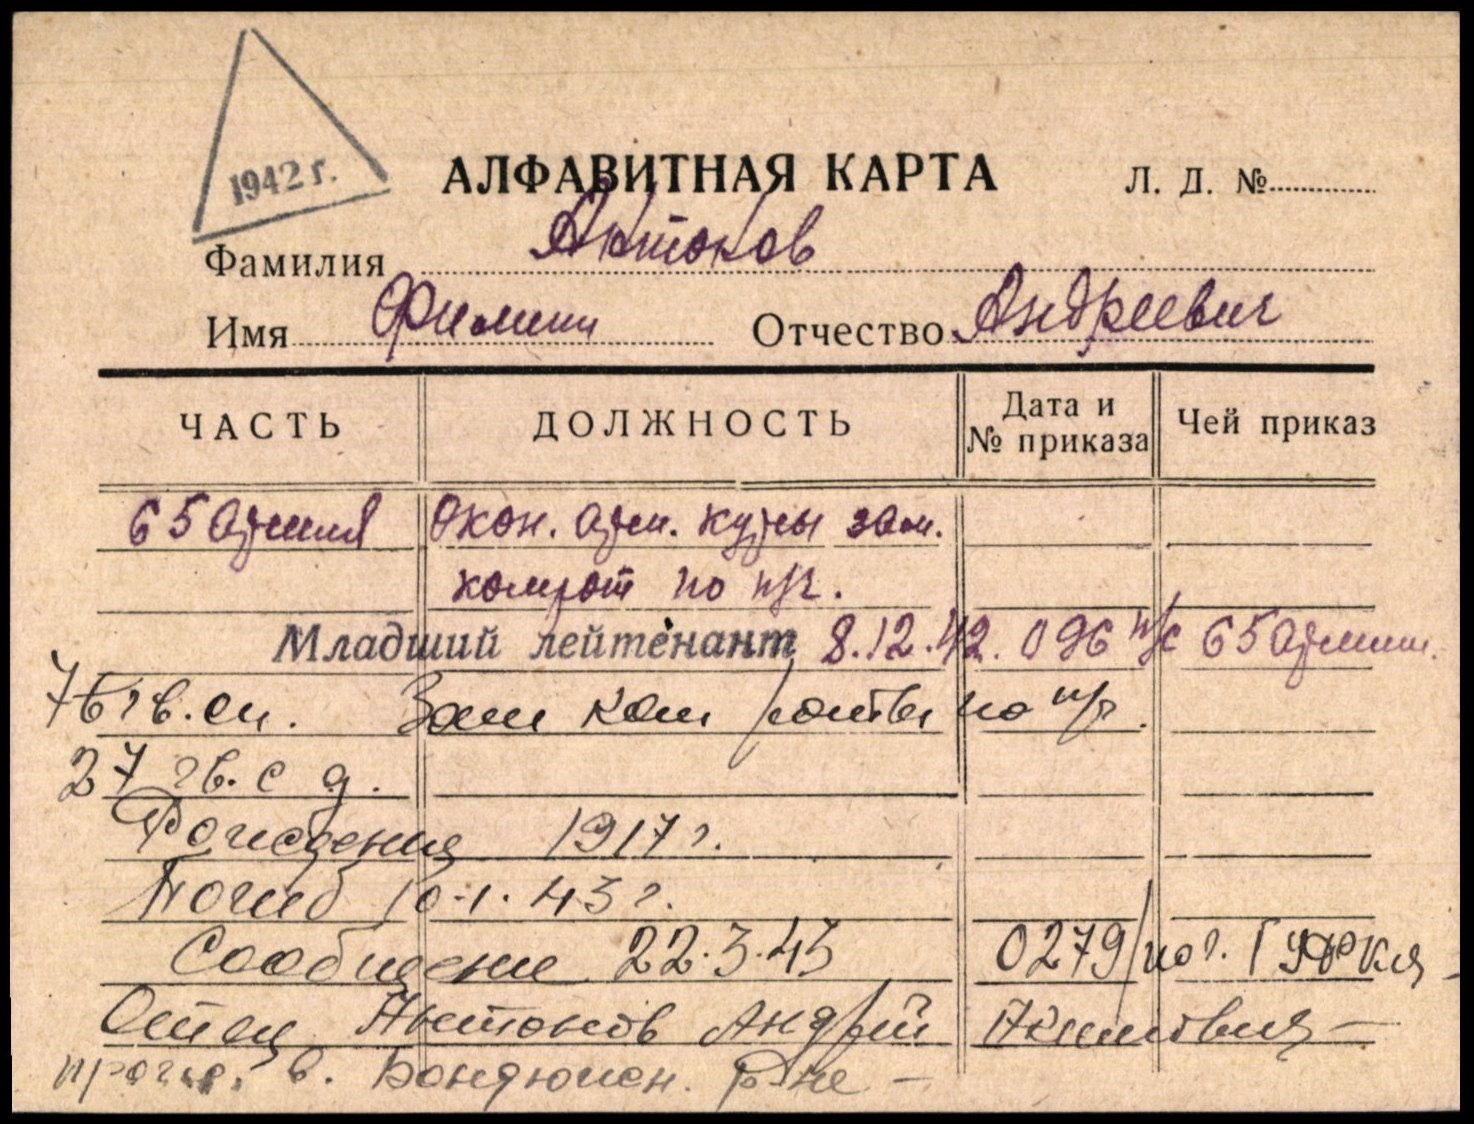 1942 г.
АЛФАВИТНАЯ КАРТА Л. Д. №
Фамилия Антонов
Имя Филипп Отчество Андреевич
ЧАСТЬ ДОЛЖНОСТЬ Дата и № приказа Чей приказ
65 армия Окон. арм. курсы зам.
комрот по п/ч.
Младший лейтенант 8.12.42. 096 п/с 65 армии.
76 гв. сп. Зам ком роты по п/ч.
27 гв. с д.
Рождения 1917 г.
Погиб 10-1. 43 г.
Сообщение 22.3.43 0279/пог.
Отец Антонов Андрей
в. Бондюжен. р-не –